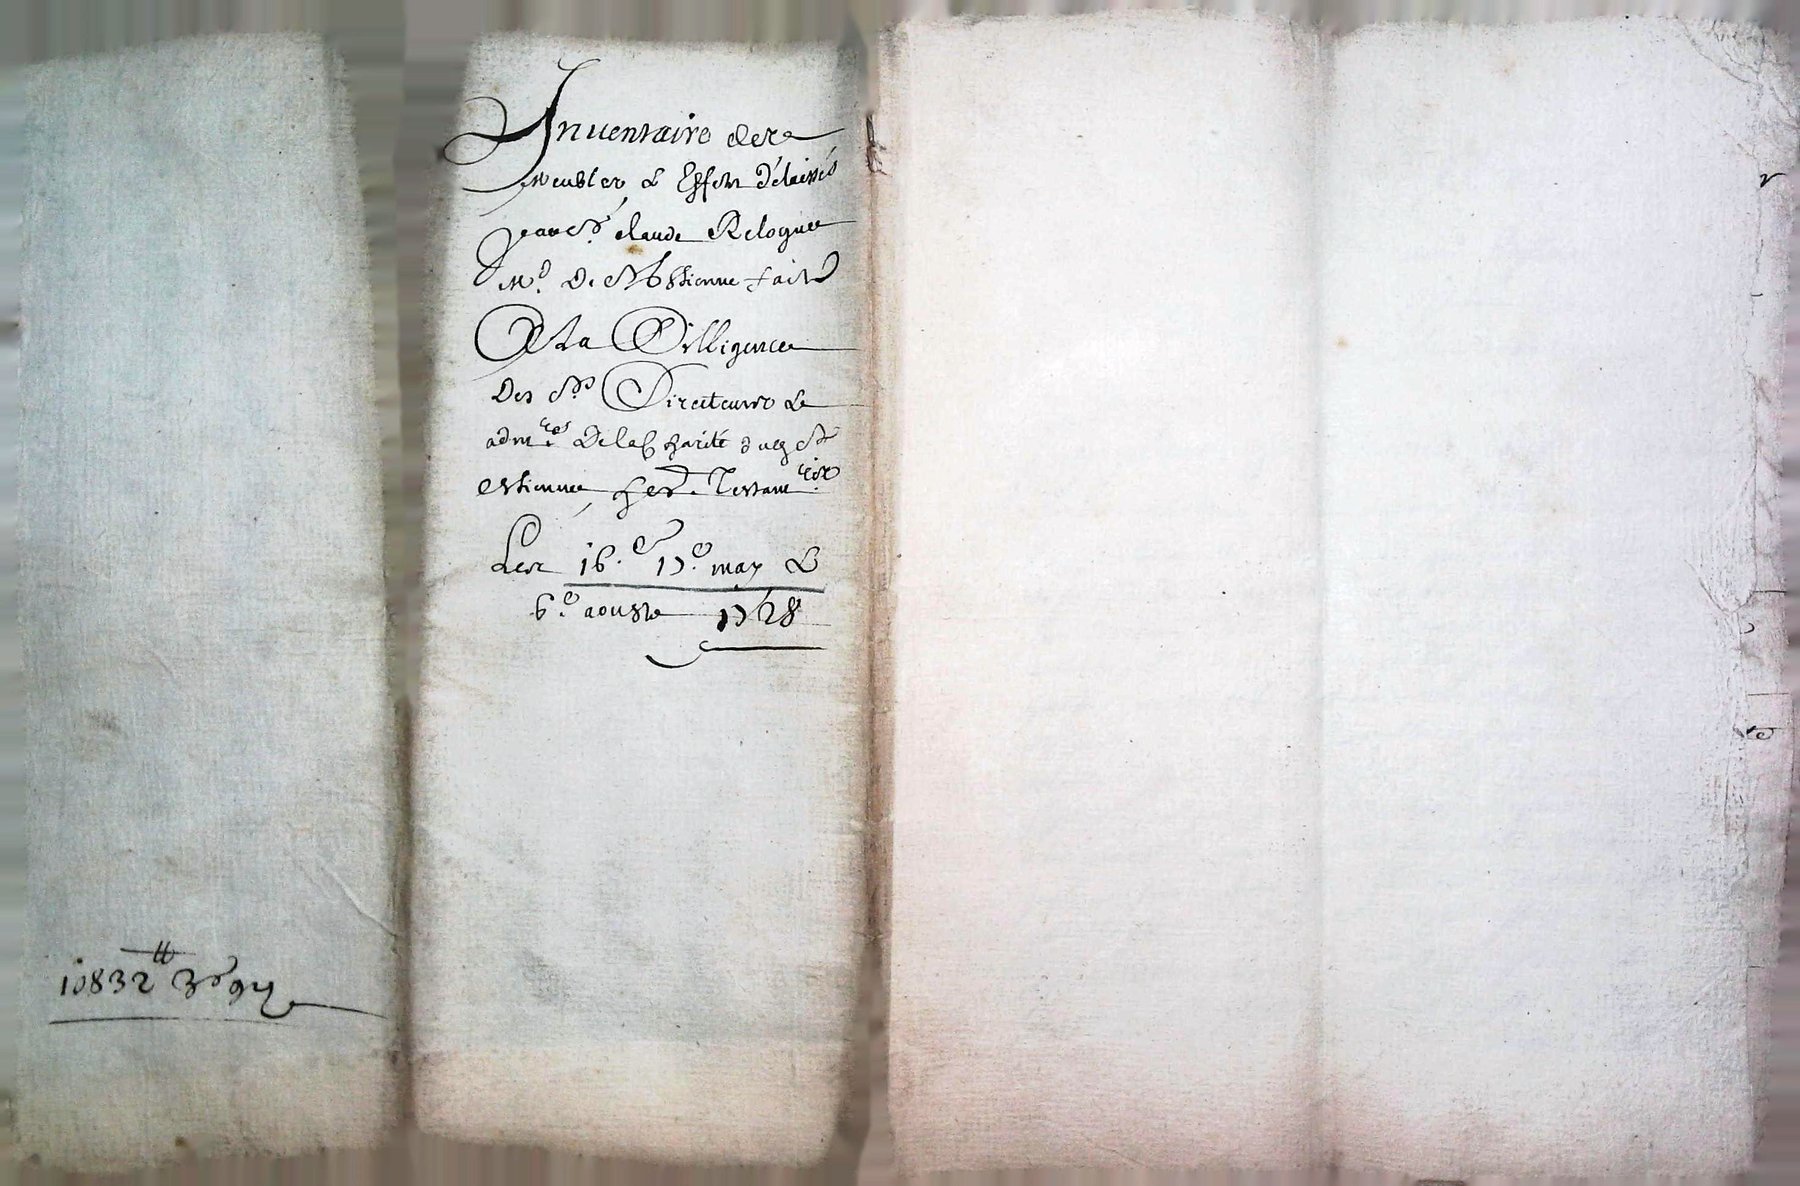 Inuentaire des
meubles & Effets délaissés
par Sr. claude Relogue
Md. De St Estienne fait
A La Dilligence
Des Srs Directeurs &
admres. De la Charité dud St
estienne, her. Testamres.
Les 16.e 17.e may &
6.e aouste 1728
10832tt 3s 9d